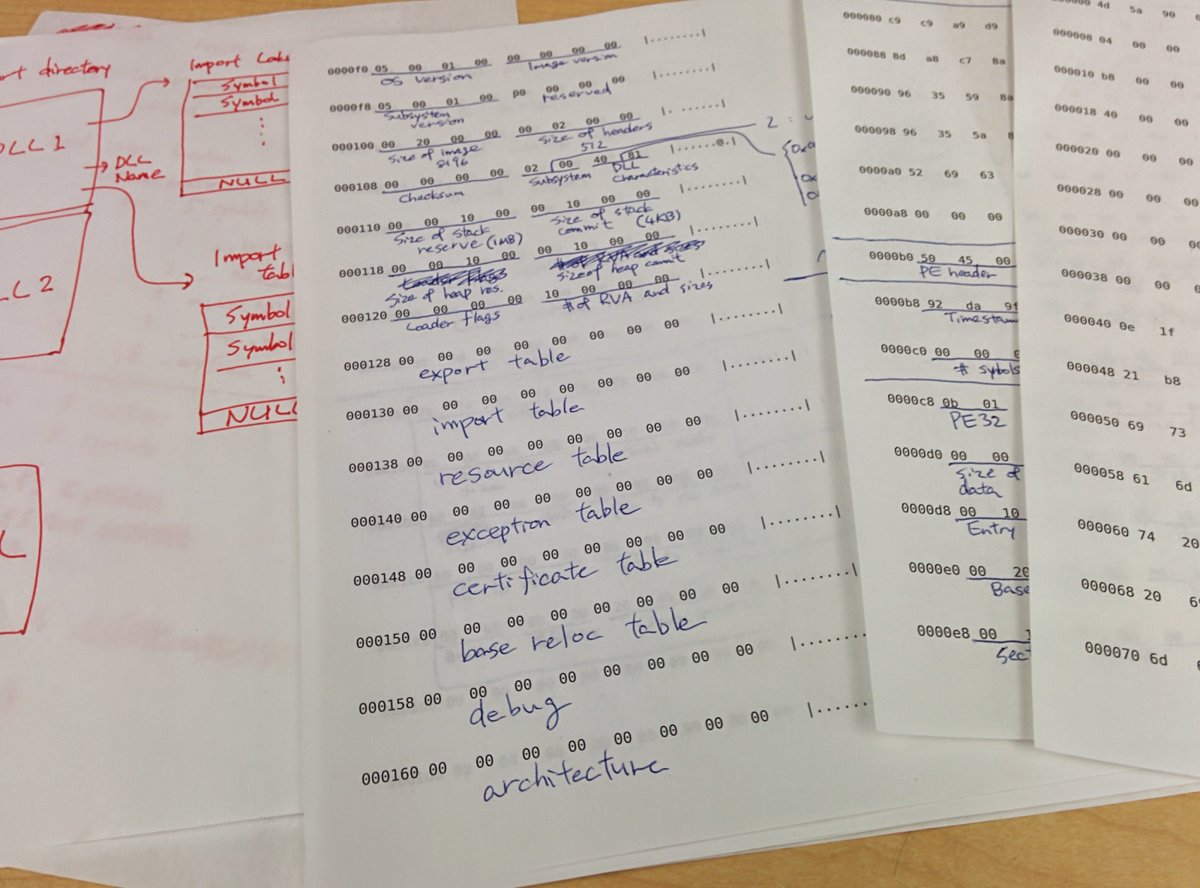 rt directory
DLL 1
DLL
Name
LL 2
L
Import Look
Symbol
Symbol
NULL
Import
tabl
Symbol
Symbol
NULL
0000f0 05 00 01 00 00 00 00 00 |........|
OS version Image version
0000f8 05 00 01 00 00 00 00 00 |........|
Subsystem version reserved
000100 00 20 00 00 00 02 00 00 |. ......|
Size of image 8196 Size of headers 512
000108 00 00 00 00 02 00 40 81 |......@.|
Checksum Subsystem DLL characteristics
000110 00 00 10 00 00 10 00 00 |........|
Size of stack reserve (1MB) Size of stack commit (4KB)
000118 00 00 10 00 00 10 00 00 |........|
Size of heap res. size of heap commit
000120 00 00 00 00 10 00 00 00 |........|
Loader flags # of RVA and sizes
000128 00 00 00 00 00 00 00 00 |........|
export table
000130 00 00 00 00 00 00 00 00 |........|
import table
000138 00 00 00 00 00 00 00 00 |........|
resource table
000140 00 00 00 00 00 00 00 00 |........|
exception table
000148 00 00 00 00 00 00 00 00 |........|
certificate table
000150 00 00 00 00 00 00 00 00 |........|
base reloc table
000158 00 00 00 00 00 00 00 00 |.......
debug
000160 00 00 00 00 00 00 00 00 |......
architecture
2 :
000080 c9 c9 a9 d9
000088 8d a8 c7 8a
000090 96 35 59 8a
000098 96 35 5a 8
0000a0 52 69 63
0000a8 00 00 00
0000b0 50 45 00
PE header
0000b8 92 da 9f
Timestam
0000c0 00 00
# sybols
0000c8 0b 01
PE32
0000d0 00 00
size of
data
0000d8 00 10
Entry
0000e0 00 20
Base
0000e8 00 1
Sec
4d 5a 90
000008 04 00 00
000010 b8 00 00
000018 40 00 00
000020 00 00 00
000028 00 00 00
000030 00 00 00
000038 00 00 00
000040 0e 1f
000048 21 b8
000050 69 73
000058 61 6d
000060 74 20
000068 20 6
000070 6d